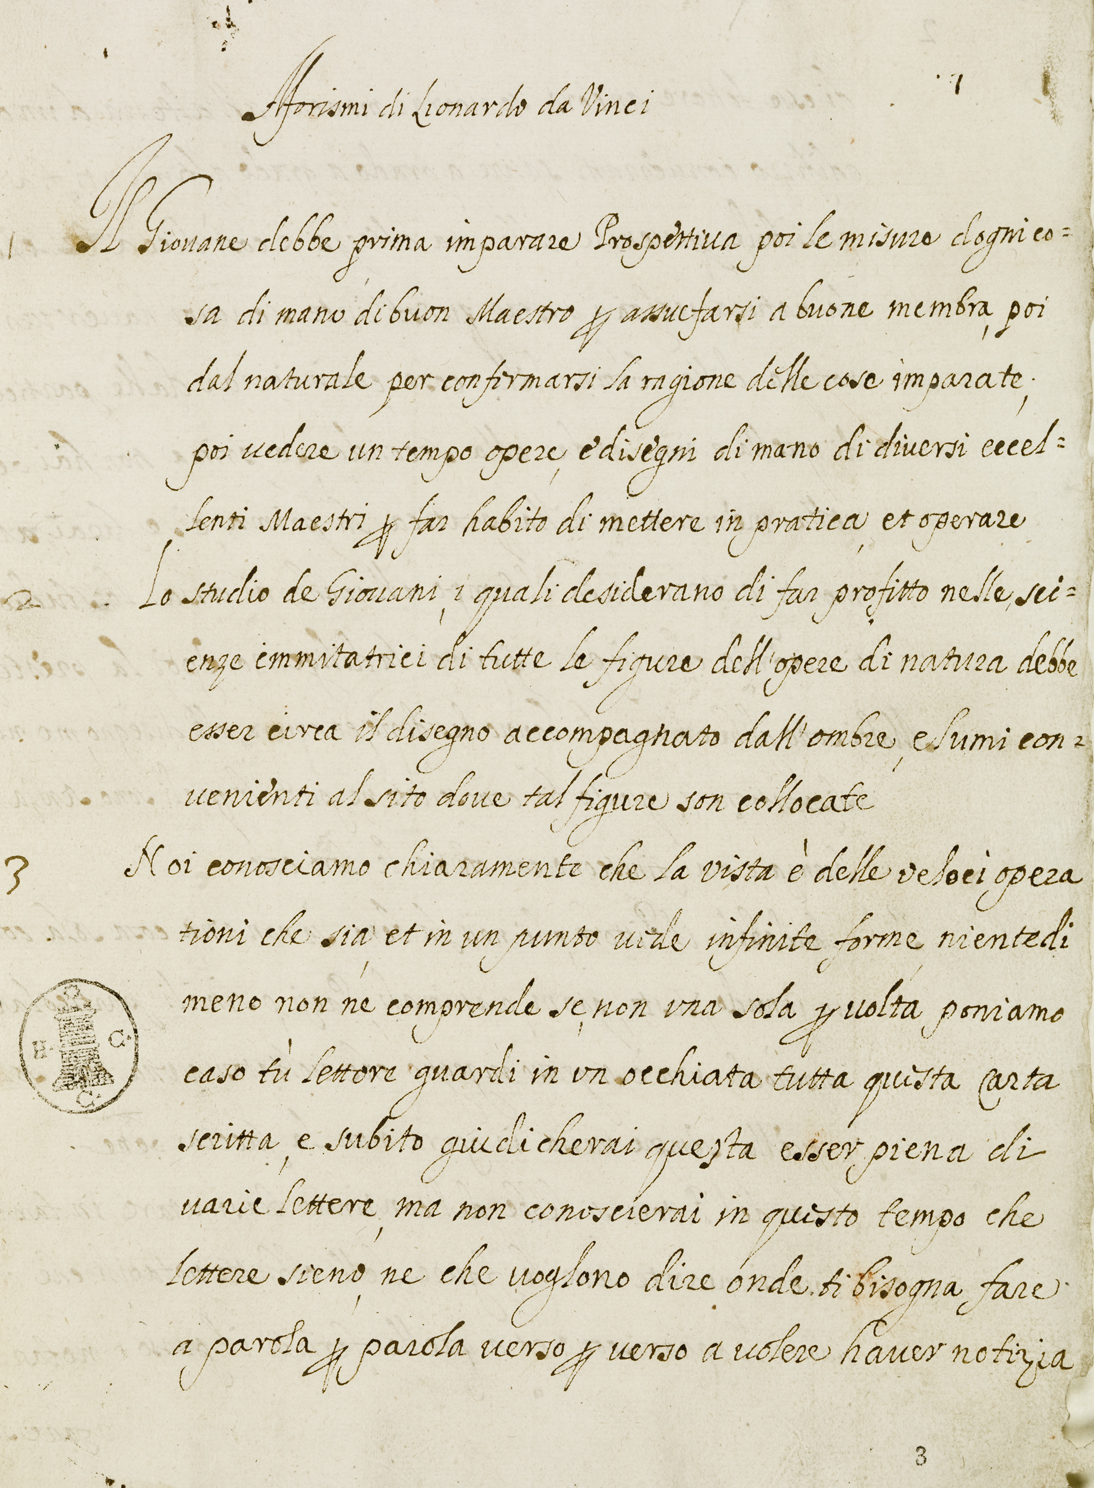 Aforismi di Lionardo da Vinci
1
1 Il Giovane debbe prima imparare Prospettiua poi le misure d ogni co=
sa di mano di buon Maestro ꝑ assuefarsi a buone membra, poi
dal naturale per confermarsi la ragione delle cose imparate,
poi vedere un tempo opere, e disegni di mano di diversi eccel=
lenti Maestri ꝑ far habito di mettere in pratica, et operare
2 Lo studio de Giovani, i quali desiderano di far profitto nelle sci=
enze immitatrici di tutte le figure dell'opere di natura debbe
esser circa il disegno accompagnato dall'ombre, e lumi con=
venienti al sito dove tal figure son collocate
3 Noi conosciamo chiaramente che la vista è delle veloci opera
tioni che sia, et in un punto vede infinite forme, nientedi
meno non ne comprende se non vna sola ꝑ volta poniamo
caso tù lettore guardi in vn occhiata tutta questa carta
scritta, e subito giudicherai questa esser piena di
varie lettere, ma non conoscierai in questo tempo che
lettere sieno, ne che voglono dire onde ti bisogna fare
a parola ꝑ parola verso ꝑ verso a volere haver notizia
B. G.
C.
3